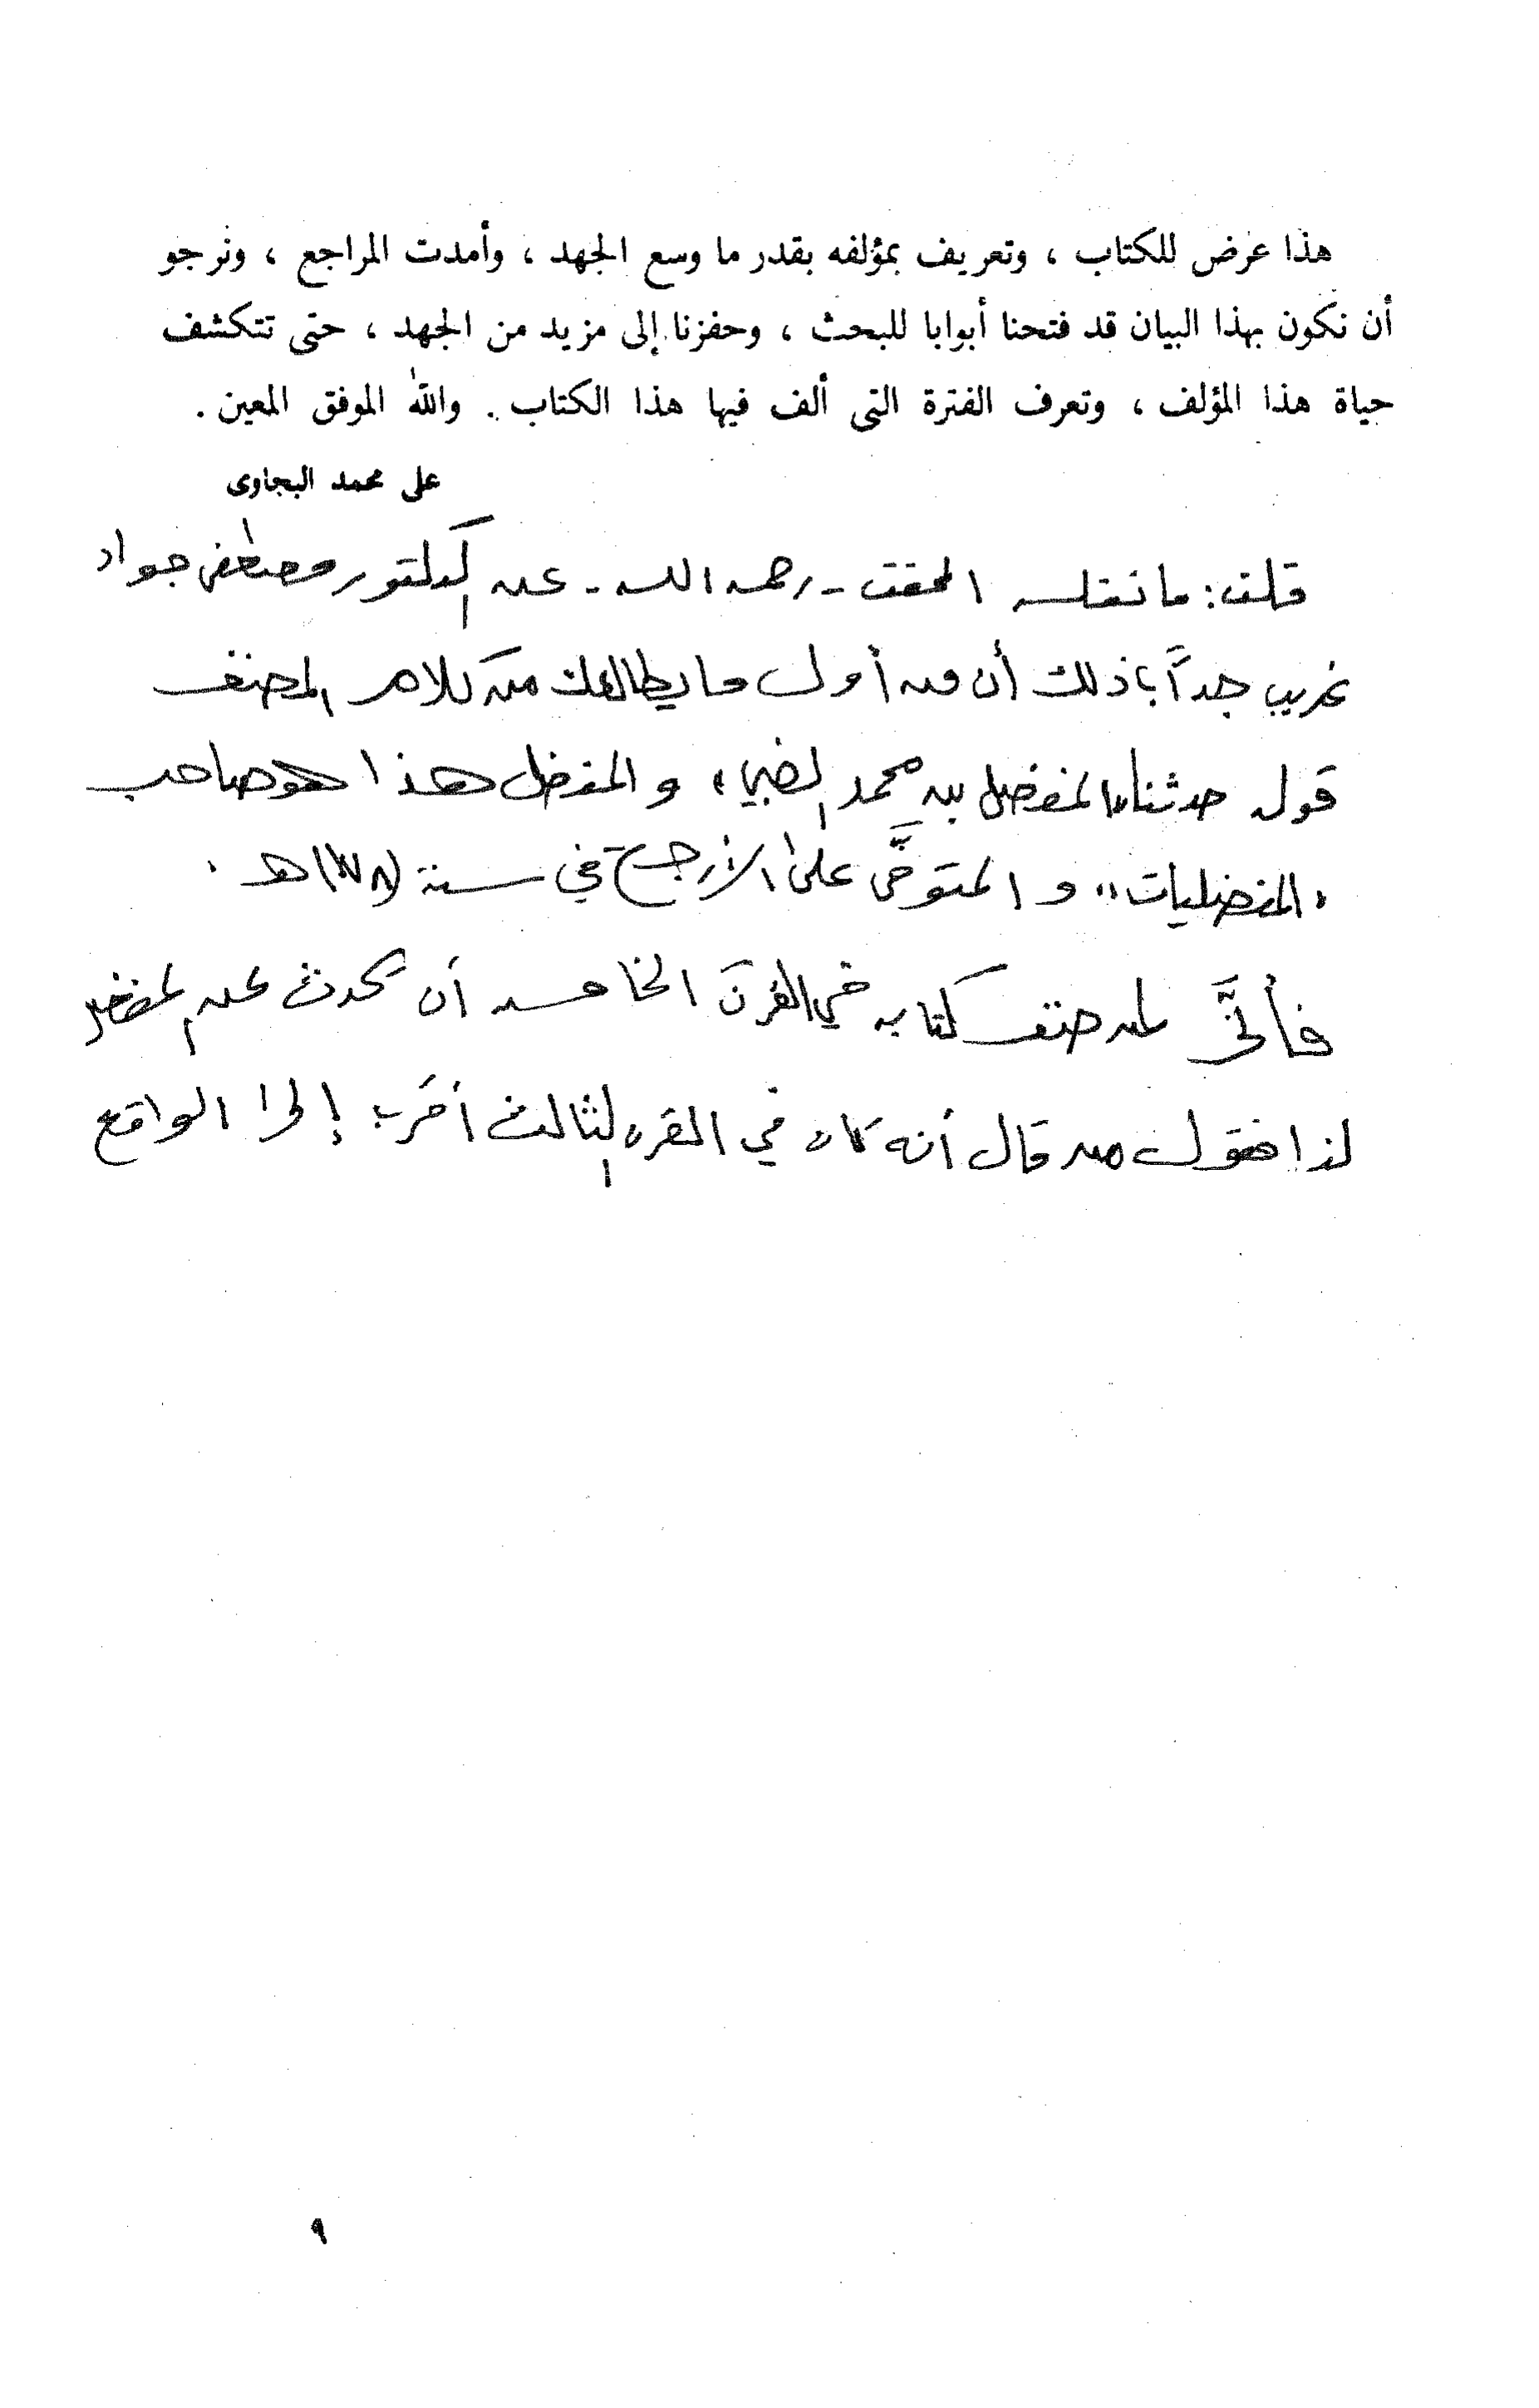 هذا عرض للكتاب ، وتعريف بمؤلفه بقدر ما وسع الجهد ، وأمدت المراجع ، ونرجو
أن نكون بهذا البيان قد فتحنا أبوابا للبحث ، وحفزنا إلى مزيد من الجهد ، حتى تتكشف
حياة هذا المؤلف ، وتعرف الفترة التى ألف فيها هذا الكتاب . والله الموفق المعين .
على محمد البجاوى
قلت : ما نقله المحقق - رحمه الله - عن الدكتور مصطفى جواد
غريب جداً، ذلك أن من أول ما يطالعك من كلام المصنف
قوله حدثنا "المفضل بن محمد الضبي" والمفضل هذا هو صاحب
"المفضليات" والمتوفَّى على الأرجح في سنة (١٧٨) هـ .
فأنَّى لمن صنف كتابه في القرن الخامس أن يحدث عن المفضل
لذا فقول من قال أنه كان في القرن الثالث أقرب إلى الواقع
٩